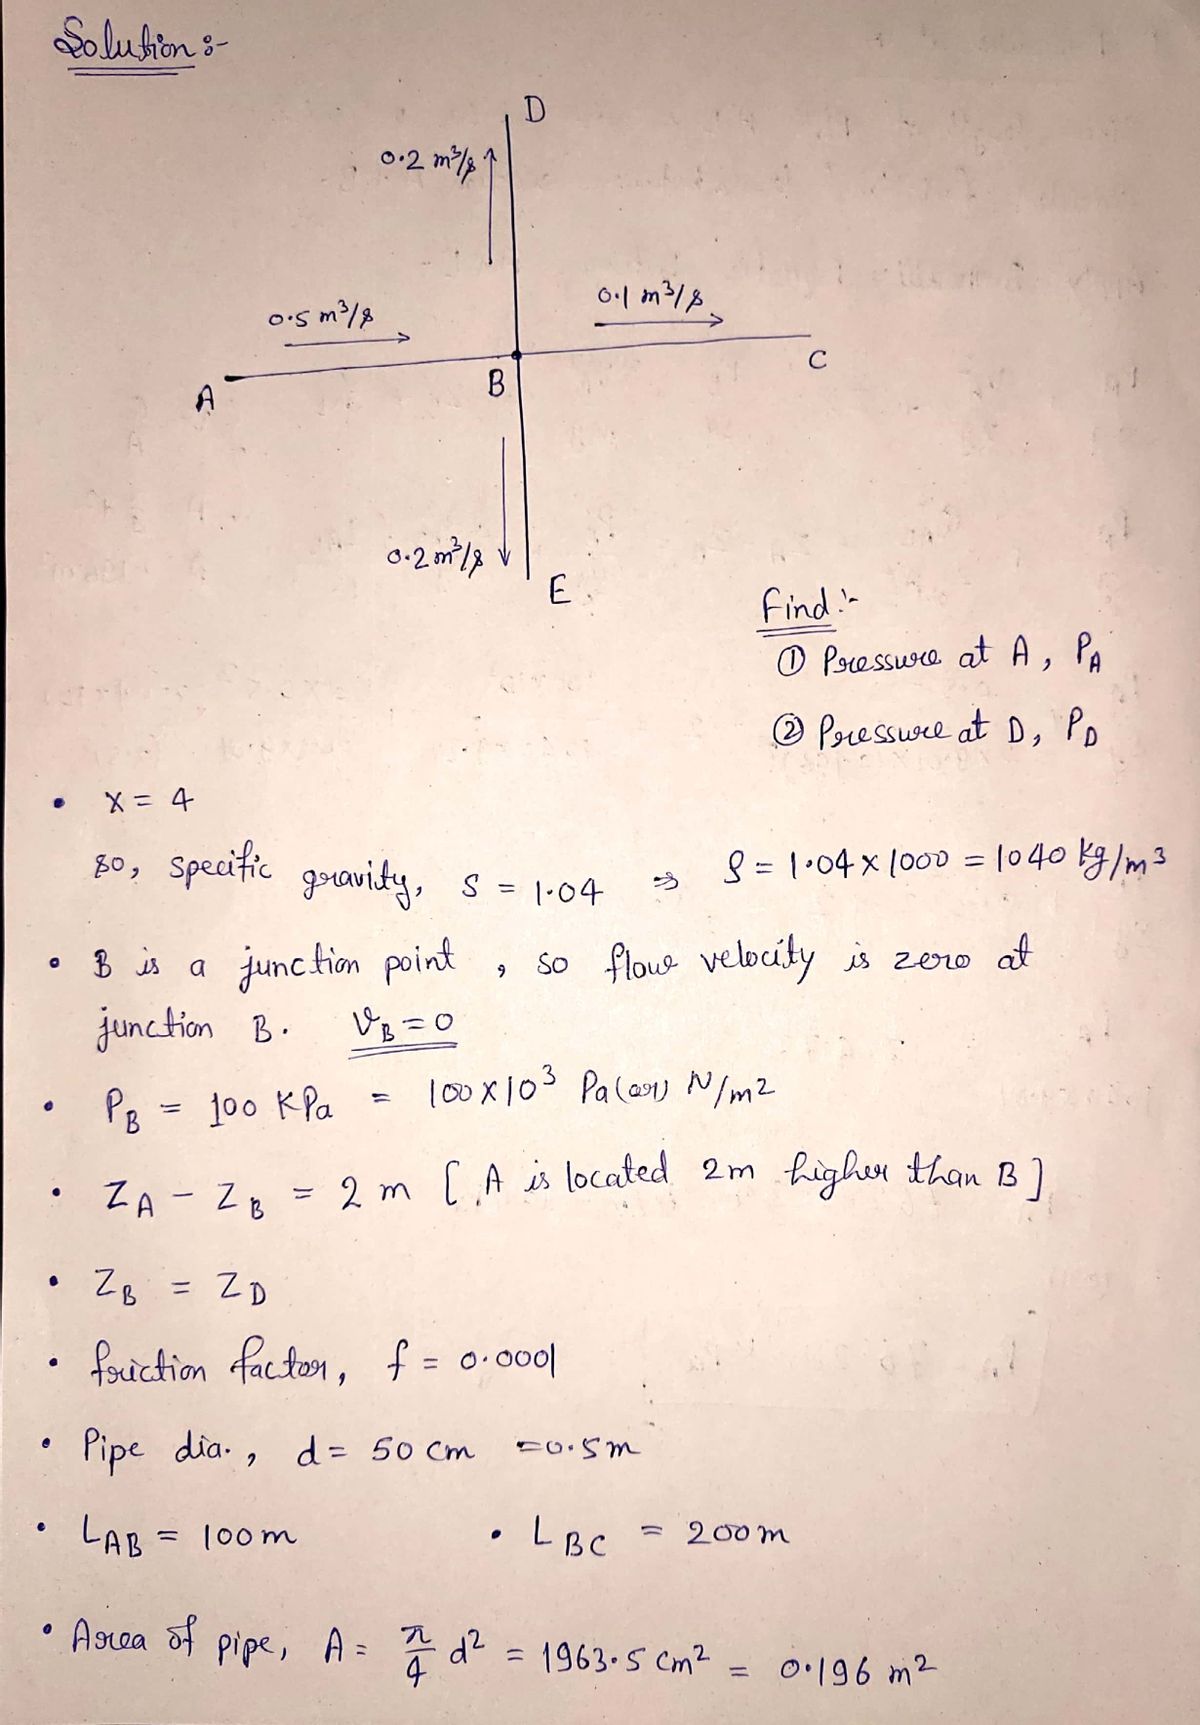 Solution :-
D
0.2 m³/s
0.5 m³/s
0.1 m³/s
A
B
C
0.2 m³/s
E
Find :-
① Pressure at A, P_A
② Pressure at D, P_D
• X = 4
so, specific gravity, S = 1.04 ⇒ ρ = 1.04 x 1000 = 1040 kg/m³
• B is a junction point, so flow velocity is zero at
junction B. V_B = 0
• P_B = 100 KPa = 100 x 10³ Pa (or) N/m²
• Z_A - Z_B = 2 m [A is located 2m higher than B]
• Z_B = Z_D
• friction factor, f = 0.0001
• Pipe dia., d = 50 cm = 0.5m
• L_AB = 100m • L_BC = 200m
• Area of pipe, A = π/4 d² = 1963.5 cm² = 0.196 m²